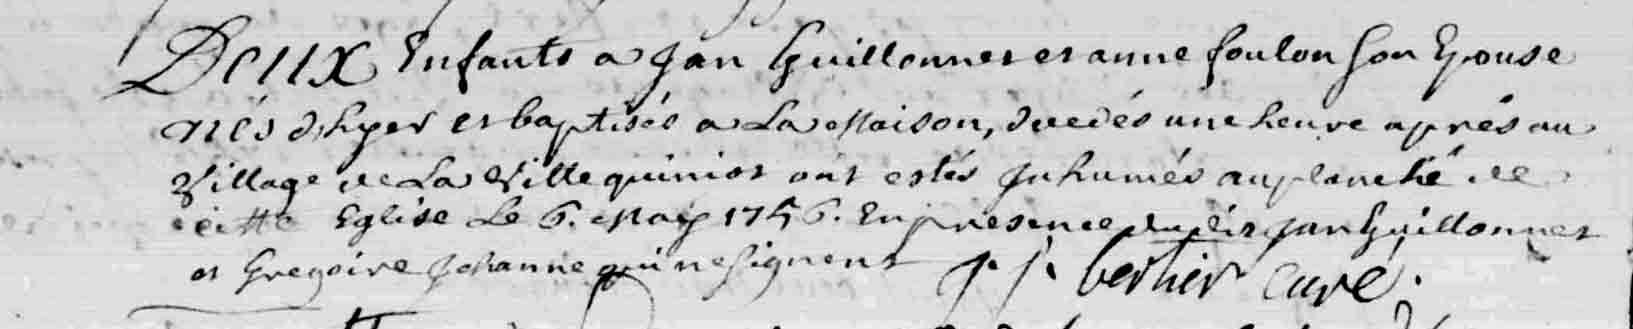 Deux Enfants a Jan Guillonnet et anne foulon son Epouse
nés dhyer et baptisés a La Maison, decedés une heure aprés au
Village de La Ville quiniot ont estés Inhumés au planché de
cette Eglise Le 6. May 1756. En presence dudit Jan Guillonnet
et Gregoire Johanne qui ne signent J. J. bertier curé.